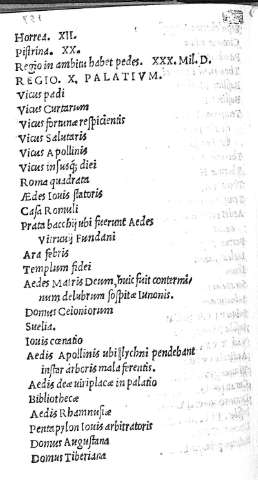 Horrea. XII.
Pistrina. XX.
Regio in ambitu habet pedes. XXX. Mil. D.
REGIO. X. PALATIVM.
Vicus padi
Vicus Curtarum
Vicus fortunæ respicientis
Vicus Salutaris
Vicus Apollinis
Vicus insusq; diei
Roma quadrata
Ædes Iouis statoris
Casa Romuli
Prata bacchij ubi fuerunt Aedes
Vitruuij Fundani
Ara febris
Templum fidei
Aedes Matris Deum, huic fuit contermi/
num delubrum sospitæ Iunonis.
Domus Ceioniorum
Suelia.
Iouis cœnatio
Aedis Apollinis ubi lychni pendebant
instar arboris mala ferentis.
Aedis deæ uiriplacæ in palatio
Bibliothecæ
Aedis Rhamnusiæ
Pentapylon Iouis arbitratoris
Domus Augustana
Domus Tiberiana